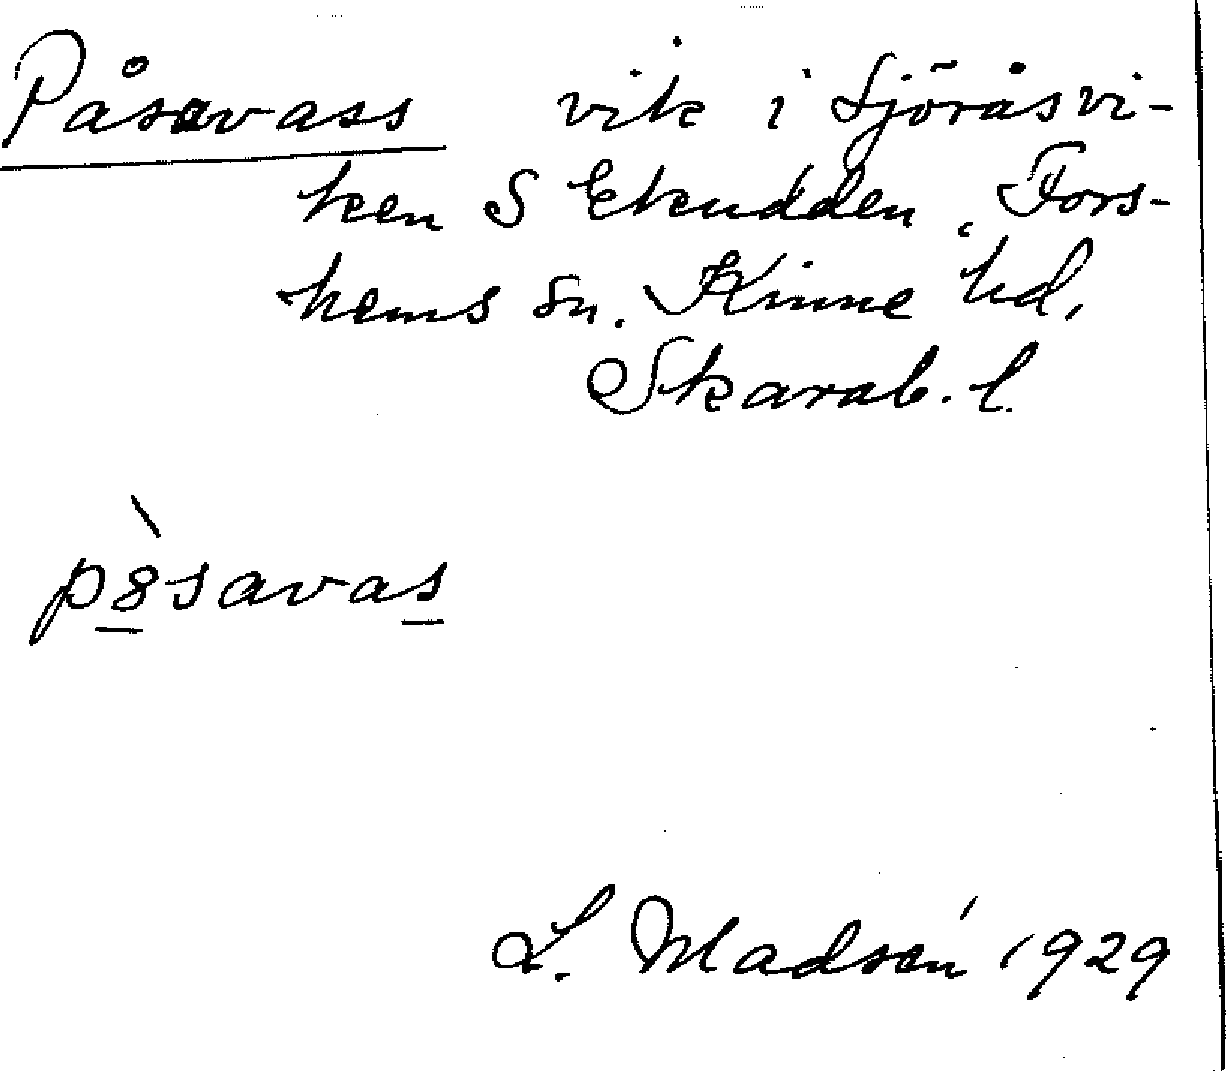 Påsavass vik i Sjöråsvi-
ken S Ekudden, Fors-
hems sn. Kinne hd,
Skarab. l.
pò̱savas̱
L. Madsén 1929